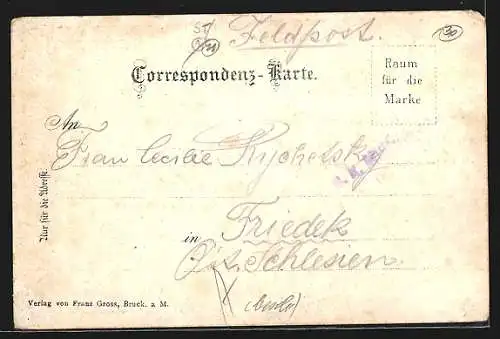 Feldpost.
30
Correspondenz-Karte.
Raum
für die
Marke
An
Frau Cecilie Rychetsky
Nur für die Adresse.
in Friedek
Öst. Schlesien.
Verlag von Franz Gross, Bruck. a M.